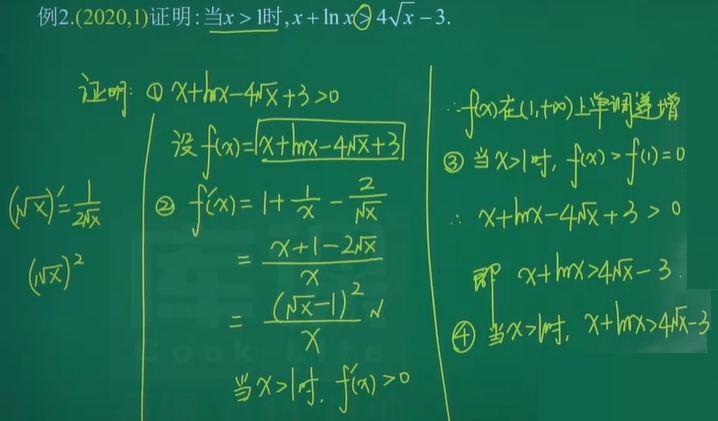 例2.(2020,1)证明:当x>1时,x+lnx>4√x-3.
证明: ① x+lnx-4√x+3>0
设f(x)=x+lnx-4√x+3
(√x)'=1/(2√x)
(√x)²
② f'(x)=1+1/x-2/√x
=(x+1-2√x)/x
=(√x-1)²/x
当x>1时, f'(x)>0
∴f(x)在(1,+∞)上单调递增
③ 当x>1时, f(x)>f(1)=0
∴ x+lnx-4√x+3>0
即 x+lnx>4√x-3.
④ 当x>1时, x+lnx>4√x-3